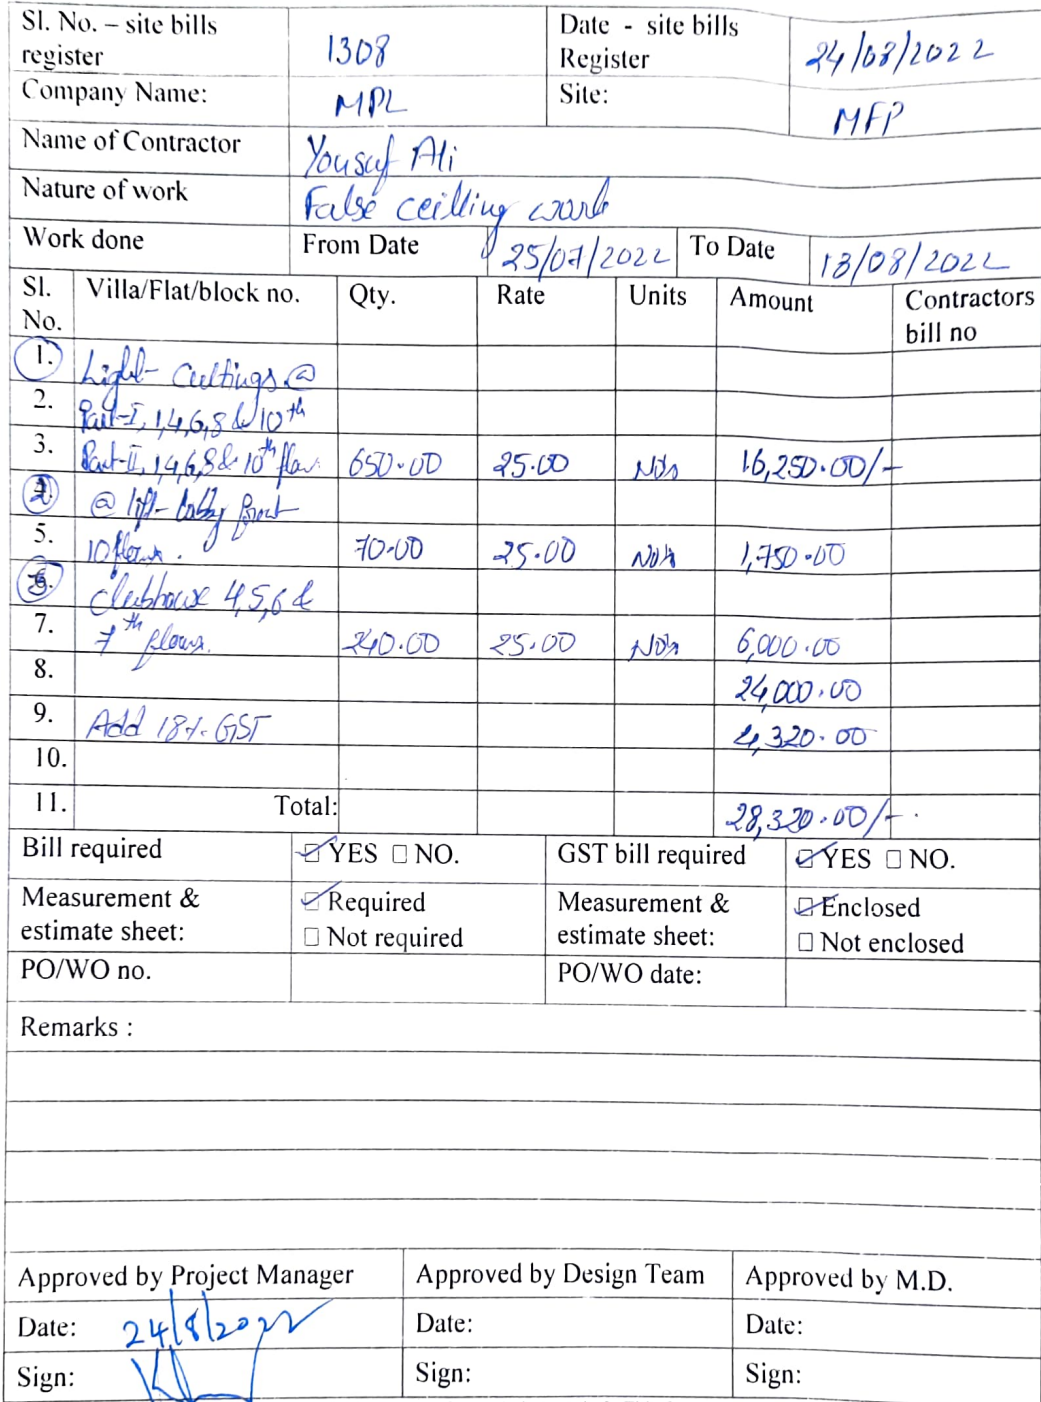 Sl. No. – site bills register 1308 Date - site bills Register 24/08/2022
Company Name: MPL Site: MFP
Name of Contractor Yousuf Ali
Nature of work False ceilling work
Work done From Date 25/07/2022 To Date 13/08/2022
Sl. No. Villa/Flat/block no. Qty. Rate Units Amount Contractors bill no
1. Light- Cuttings @
2. Part-I, 1,4,6,8 & 10th
3. Part-II, 1,4,6,8 & 10th floor. 650.00 25.00 Nos 16,250.00/-
2 @ lift- lobby front
5. 10 floors. 70.00 25.00 Nos 1,750.00
3 Clubhouse 4,5,6 &
7. 7th floors. 240.00 25.00 Nos 6,000.00
8. 24,000.00
9. Add 18%. GST 4,320.00
10.
11. Total: 28,320.00/-
Bill required ☑ YES ☐ NO. GST bill required ☑ YES ☐ NO.
Measurement & estimate sheet: ☑ Required Measurement & estimate sheet: ☑ Enclosed
☐ Not required ☐ Not enclosed
PO/WO no. PO/WO date:
Remarks :
Approved by Project Manager Approved by Design Team Approved by M.D.
Date: 24/8/2022 Date: Date:
Sign: Sign: Sign: